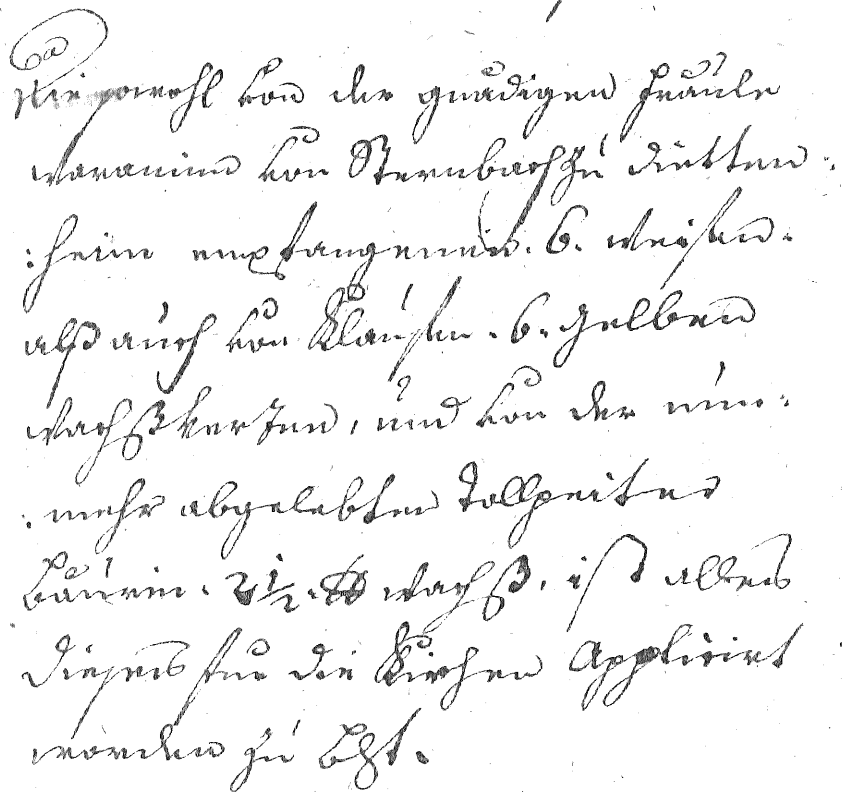 Die sowohl von der gnädigen Fräule
Maranina von Sternbach zu Dietten¬
:heim empfangenen .6. Weisen.
alß auch von Klausen .6. gelben
Wachßkerzen, und von der nun:
:mehr abgelebten Tollpeiter
Bäurin. 2½. ℔ Wachß, ist alles
dieses für die Kirchen Applicirt
worden zu